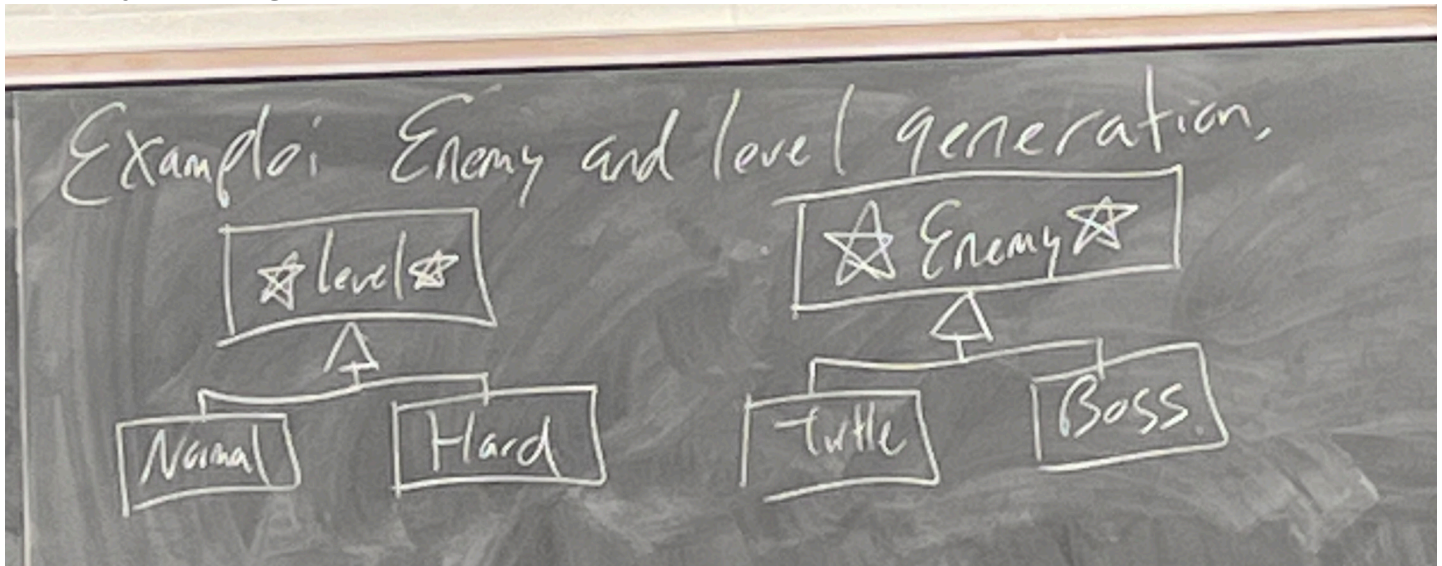 Example: Enemy and level generation.
level
Enemy
Normal
Hard
Turtle
Boss